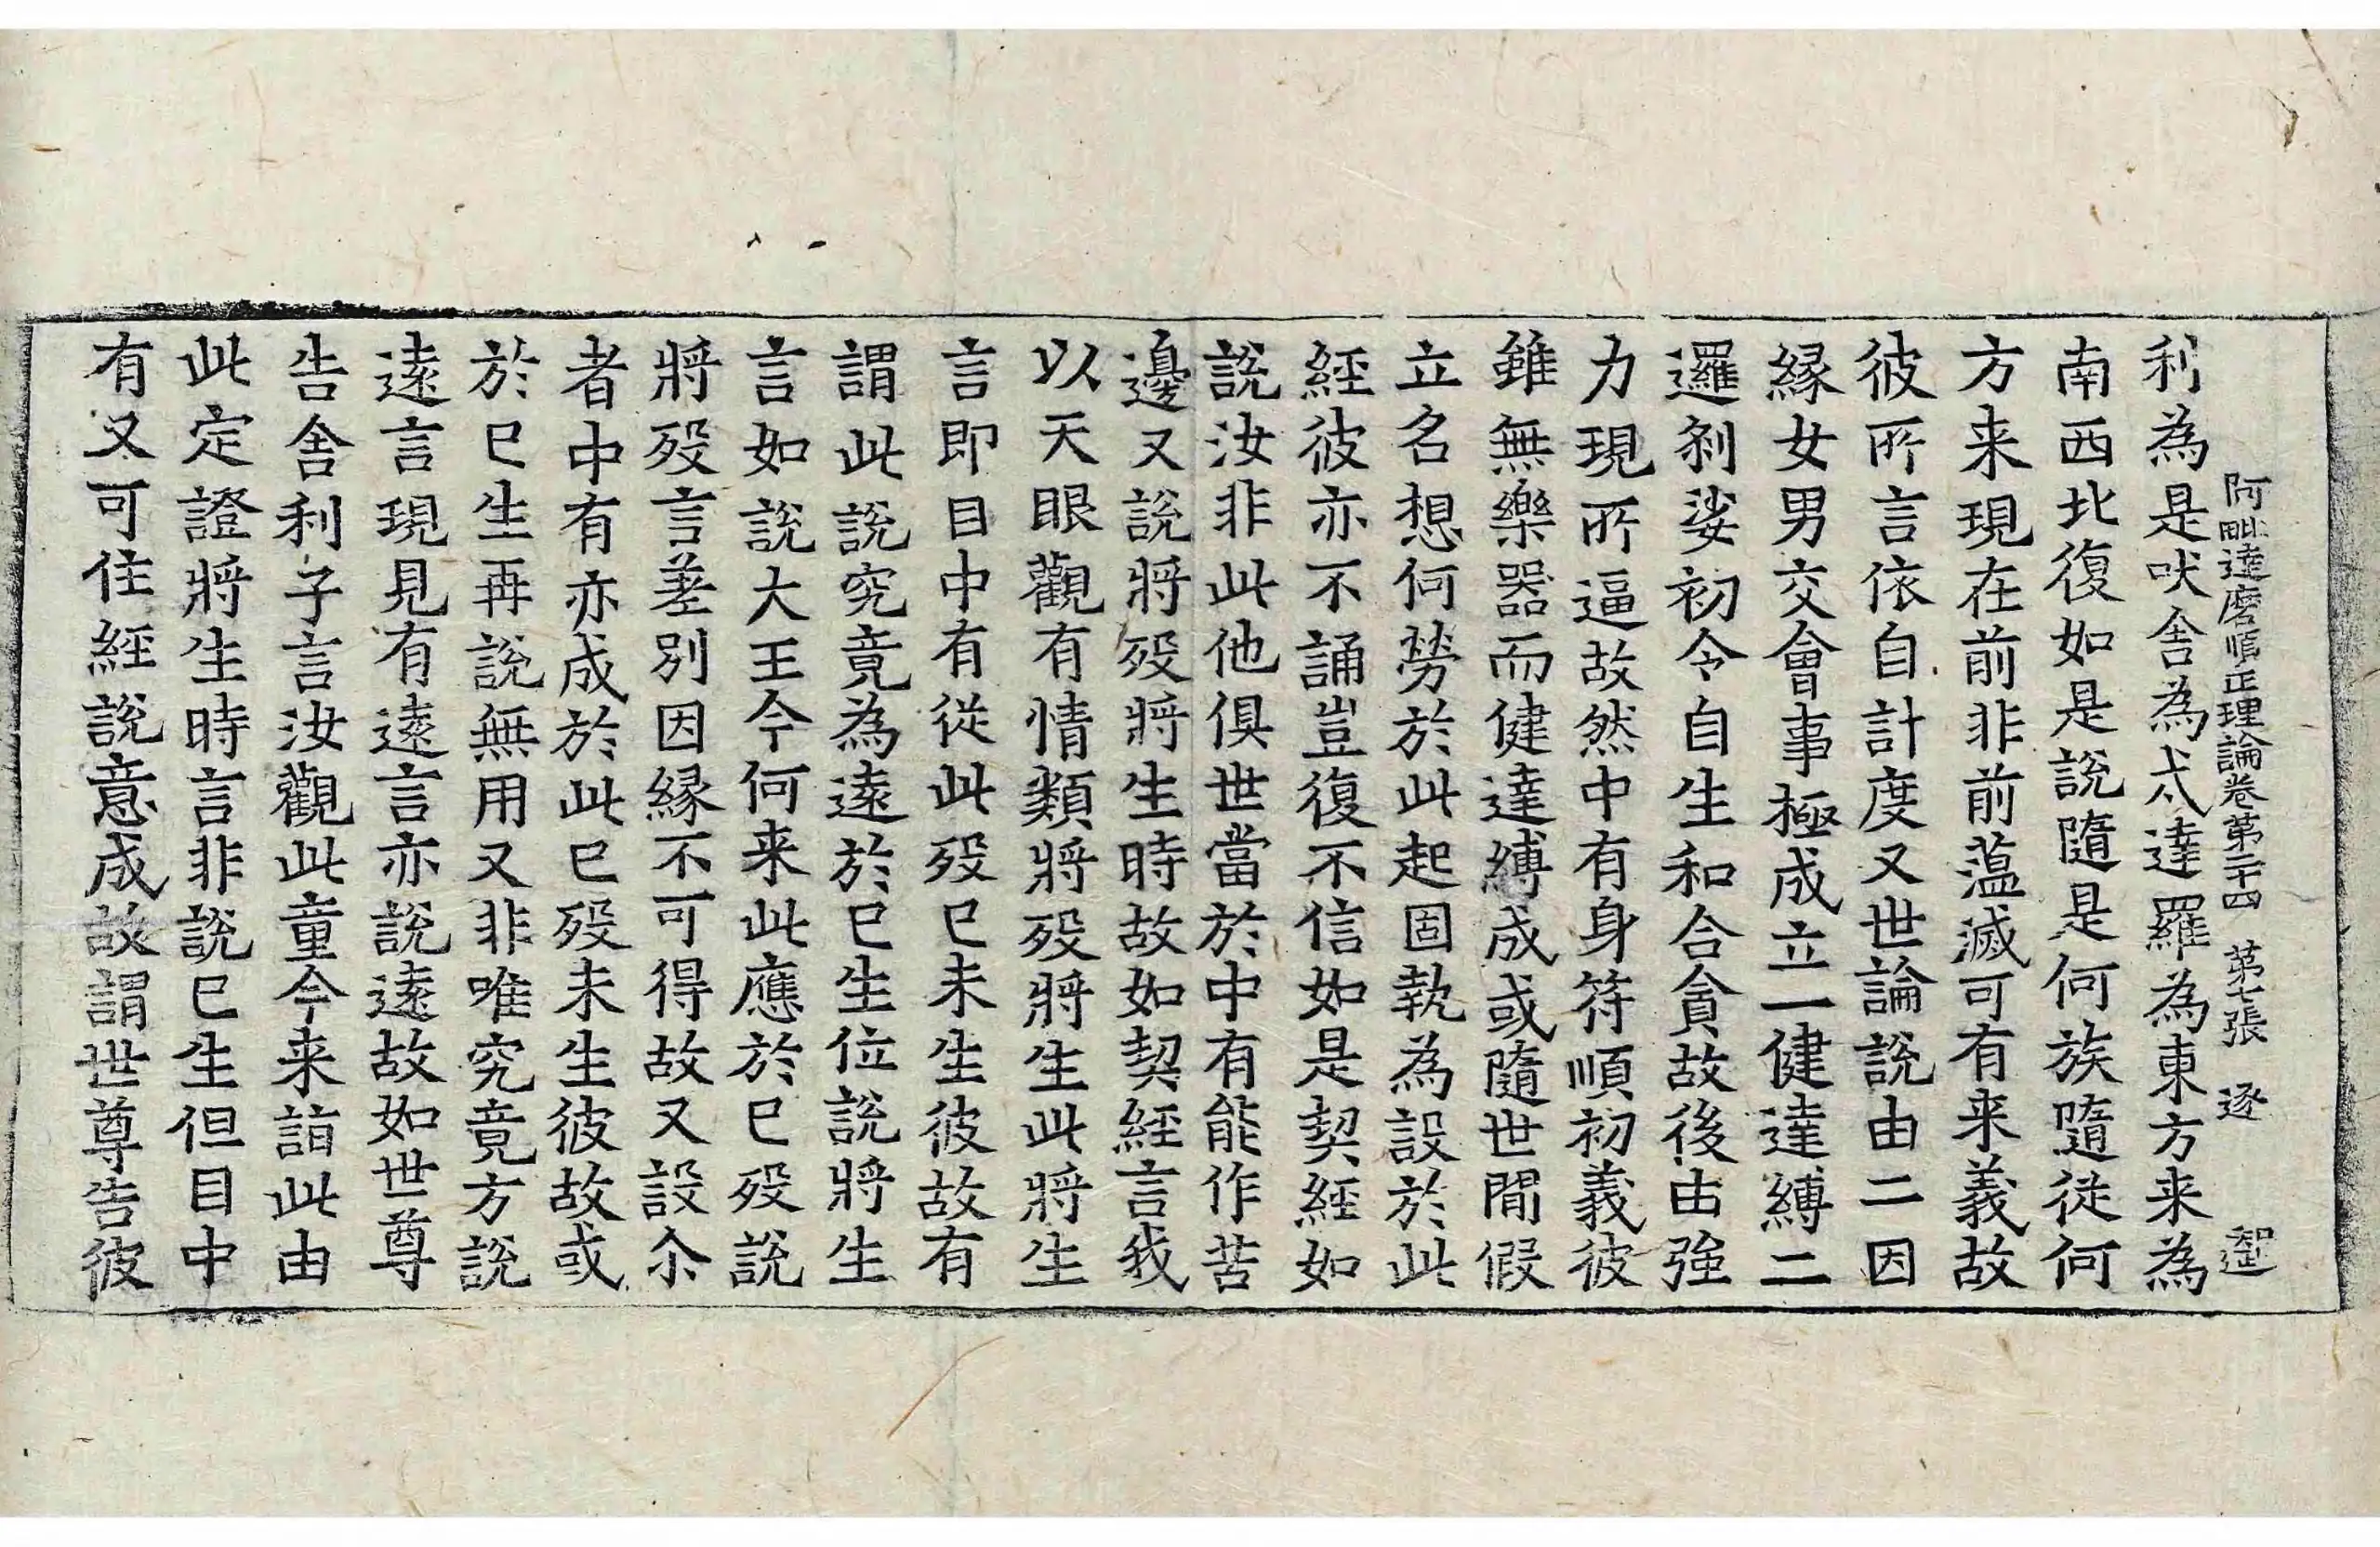 阿毗達磨順正理論卷第二十四 第七張 逐 智㝎
利為是吠舍為戍達羅為東方来為
南西北復如是說隨是何族隨從何
方来現在前非前薀滅可有来義故
彼所言依自計度又世論說由二因
縁女男交會事極成立一健達縛二
邏剎娑初令自生和合貪故後由強
力現所逼故然中有身符順初義彼
雖無樂器而健達縛成或隨世間假
立名想何勞於此起固執為設於此
經彼亦不誦豈復不信如是契經如
說汝非此他俱世當於中有能作苦
邊又說將歿將生時故如契經言我
以天眼觀有情類將歿將生此將生
言即目中有從此歿已未生彼故有
謂此說究竟為遠於已生位說將生
言如說大王今何来此應於已歿說
將歿言差別因縁不可得故又設尒
者中有亦成於此已歿未生彼故或
於已生再說無用又非唯究竟方說
遠言現見有遠言亦說遠故如世尊
告舍利子言汝觀此童今来詣此由
此定證將生時言非說已生但目中
有又可住經說意成故謂世尊告彼